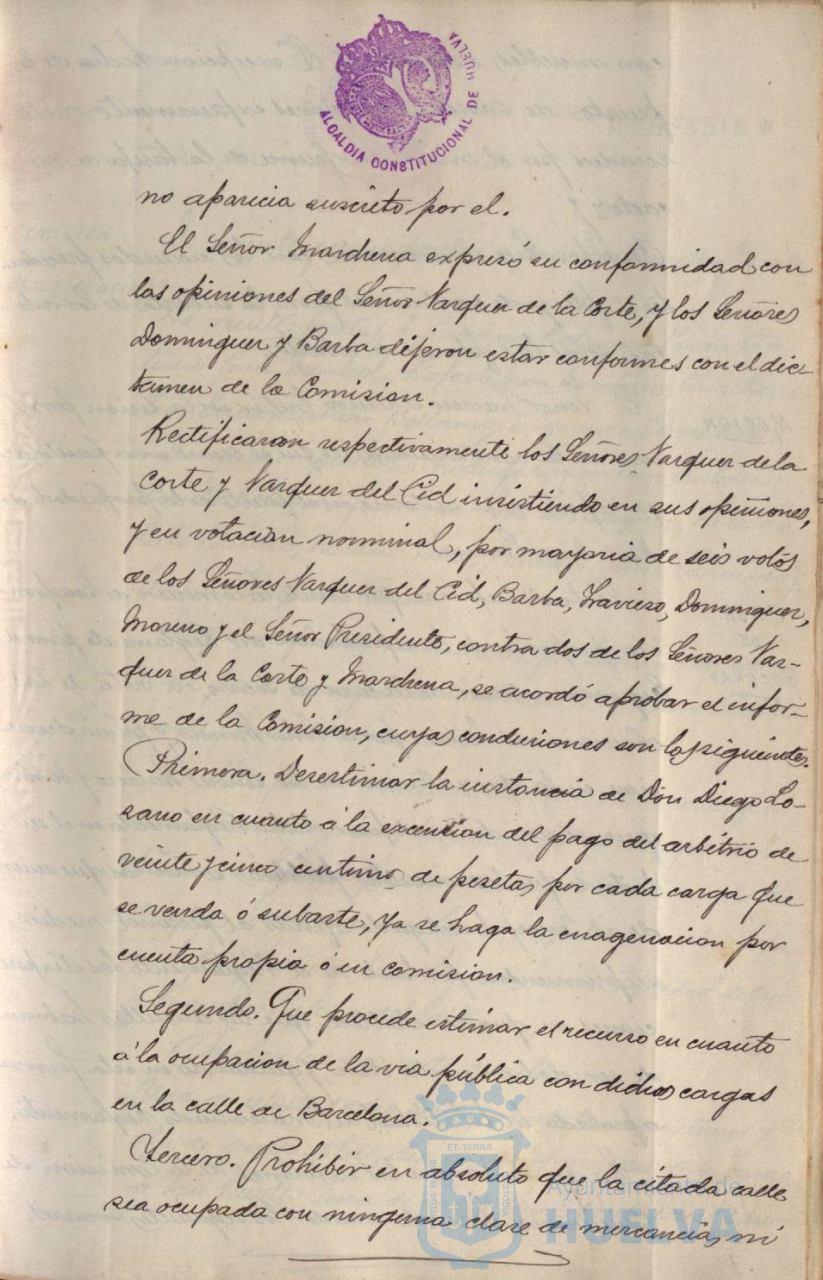 ALCALDIA CONSTITUCIONAL DE HUELVA
no aparicia suscrito por el.
El Señor Marchena expresó su conformidad con
las opiniones del Señor Vazquez de la Corte, y los Señores
Dominguez y Barba dijeron estar conformes con el dic-
tamen de la Comision.
Rectificaron respectivamente los Señores Vazquez de la
Corte y Vazquez del Cid insistiendo en sus opiniones,
y en votacion nominal, por mayoria de seis votos
de los Señores Vazquez del Cid, Barba, Travieso, Dominguez,
Moreno y el Señor Presidente, contra dos de los Señores Vaz-
quez de la Corte y Marchena, se acordó aprobar el infor-
me de la Comision, cuyas conclusiones son las siguientes.
Primera. Desestimar la instancia de Don Diego Lo-
zano en cuanto á la exencion del pago del arbitrio de
veinte y cinco centimos de pesetas por cada carga que
se venda ó subaste, ya se haga la enagenacion por
cuenta propia ó en comision.
Segundo. Que procede estimar el recurso en cuanto
á la ocupacion de la via pública con dichas cargas
en la calle de Barcelona.
Tercero. Prohibir en absoluto que la citada calle
sea ocupada con ninguna clase de mercancias, ni
Ayuntamiento de
HUELVA